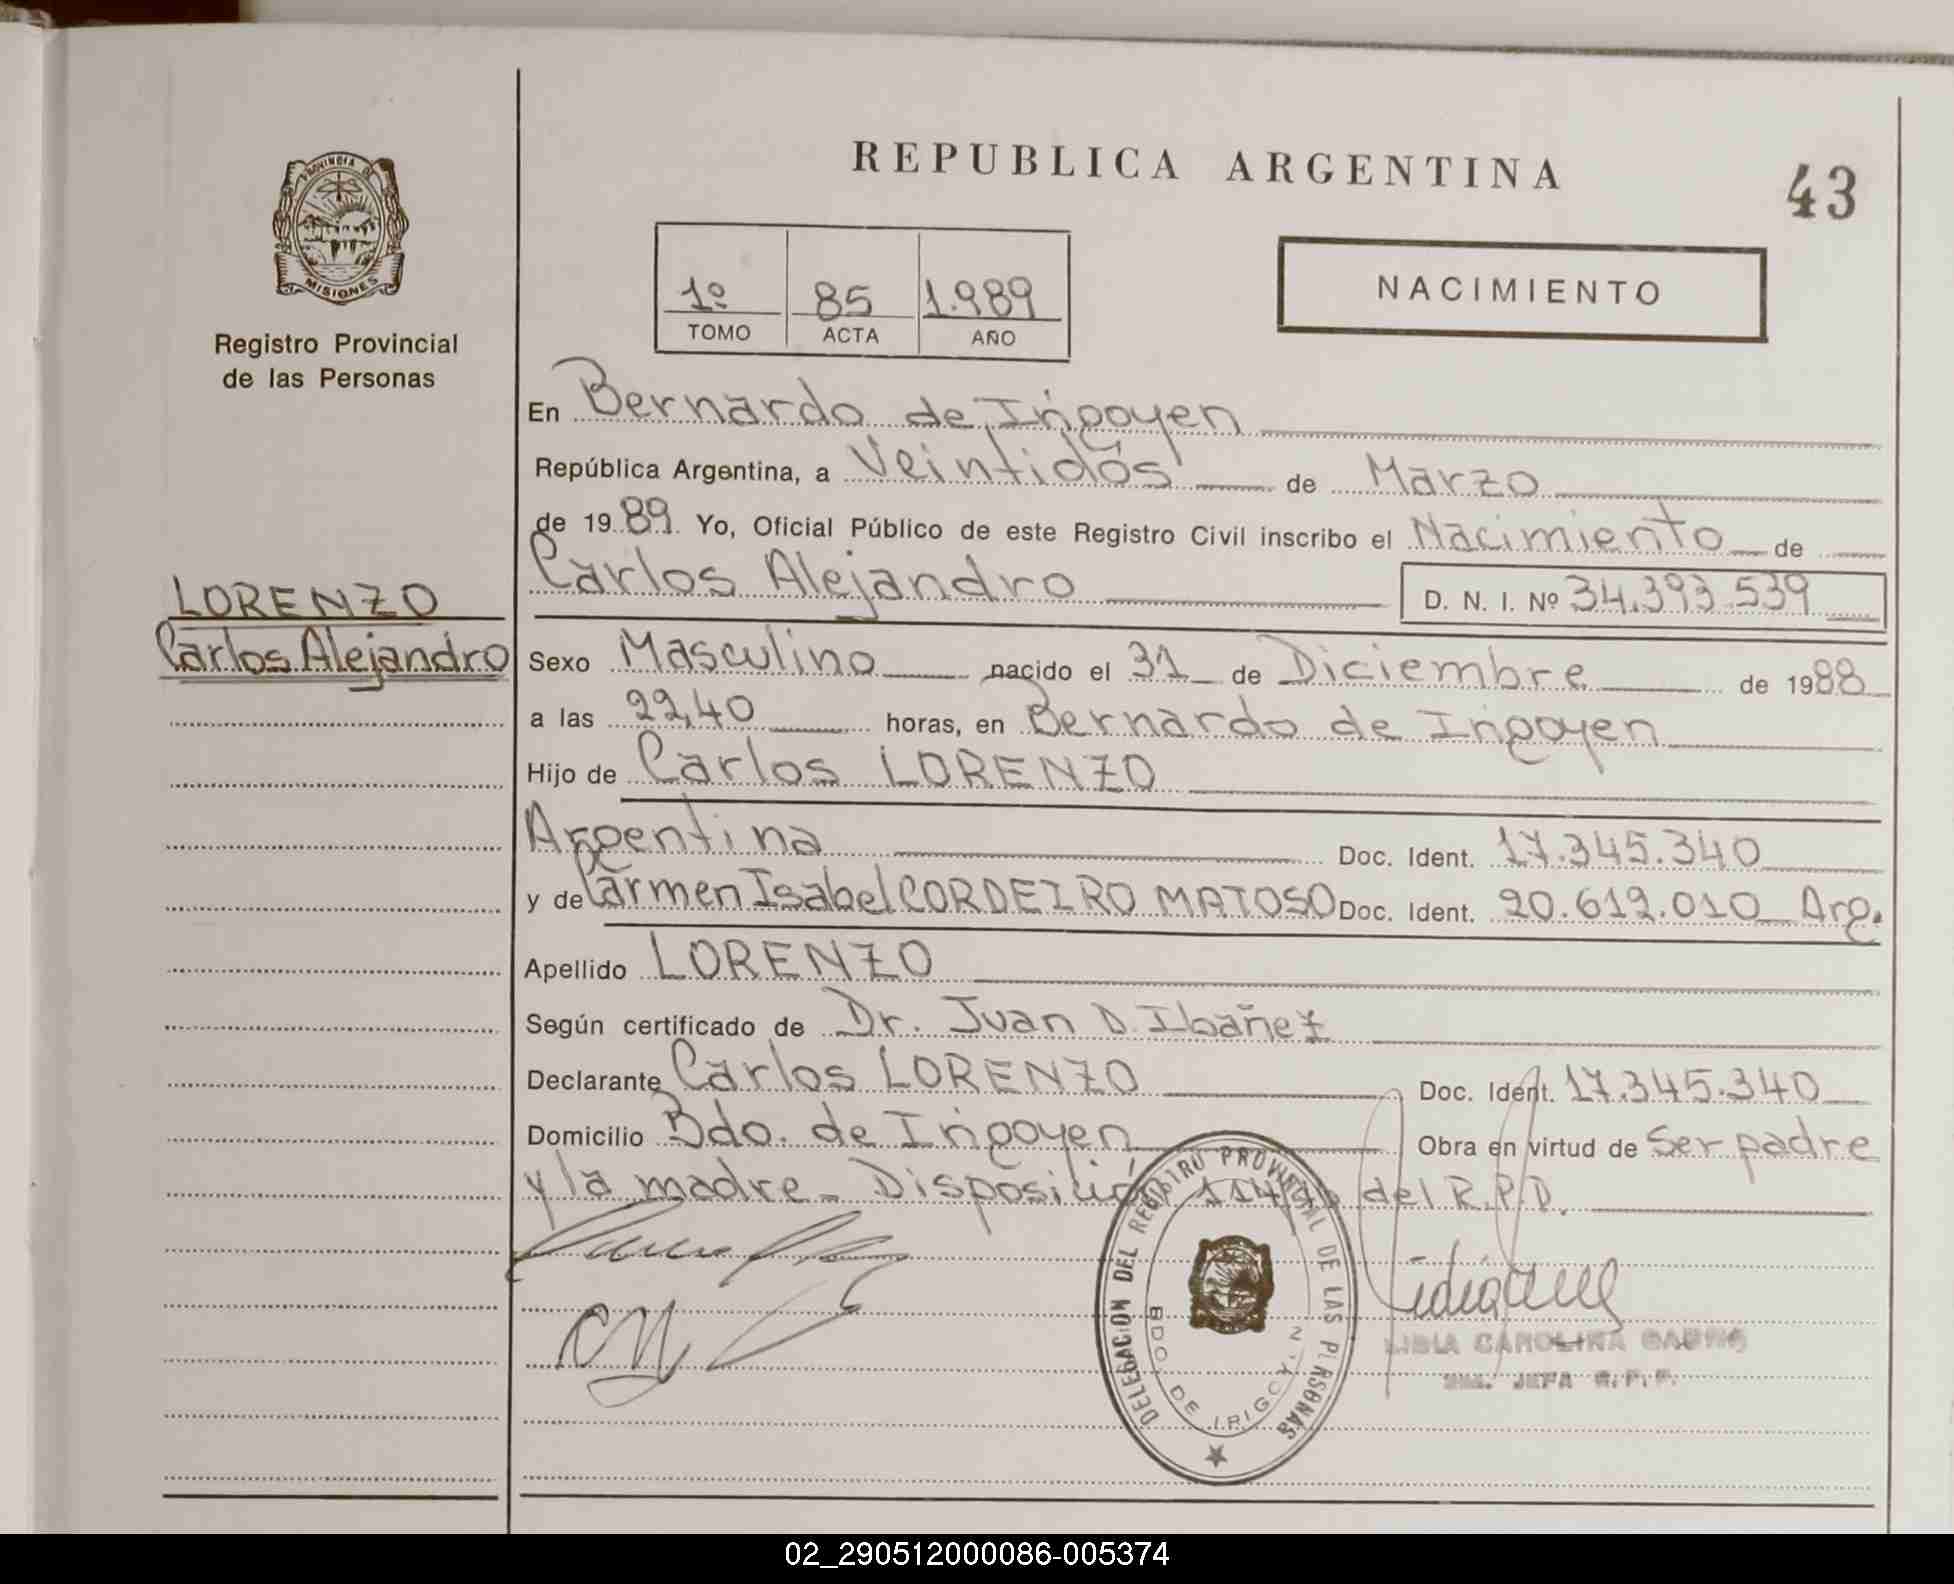 REPUBLICA ARGENTINA
43
PROVINCIA DE
MISIONES
Registro Provincial
de las Personas
1º 85 1.989
TOMO ACTA AÑO
NACIMIENTO
En Bernardo de Irigoyen
República Argentina, a Veintidós de Marzo
de 1989 Yo, Oficial Público de este Registro Civil inscribo el Nacimiento de
Carlos Alejandro D. N. I. Nº 34.393.539
LORENZO
Carlos Alejandro
Sexo Masculino nacido el 31 de Diciembre de 1988
a las 22,40 horas, en Bernardo de Irigoyen
Hijo de Carlos LORENZO
Argentina Doc. Ident. 17.345.340
y de Carmen Isabel CORDEIRO MATOSO Doc. Ident. 20.612.010 Arg.
Apellido LORENZO
Según certificado de Dr. Juan D. Ibañez
Declarante Carlos LORENZO Doc. Ident. 17.345.340
Domicilio Bdo. de Irigoyen Obra en virtud de Ser padre
y la madre - Disposición del R.P.P.
DELEGACION DEL REGISTRO PROVINCIAL DE LAS PERSONAS
BDO. DE IRIGOYEN
LIDIA CAROLINA
JEFA R.P.P.
02_290512000086-005374